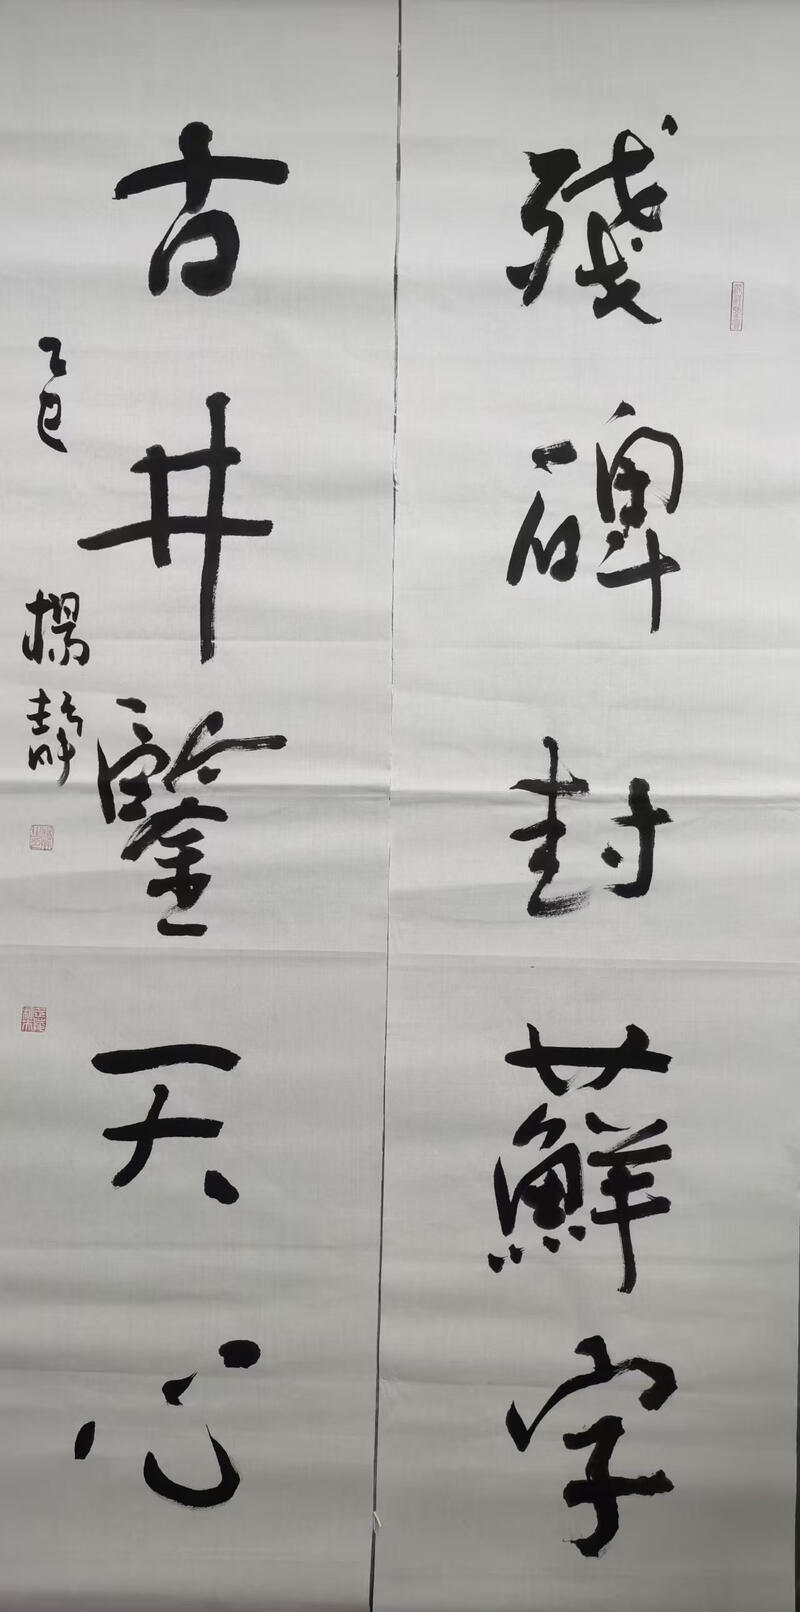 殘碑封蘚字
古井鑒天心
乙巳
楊靜